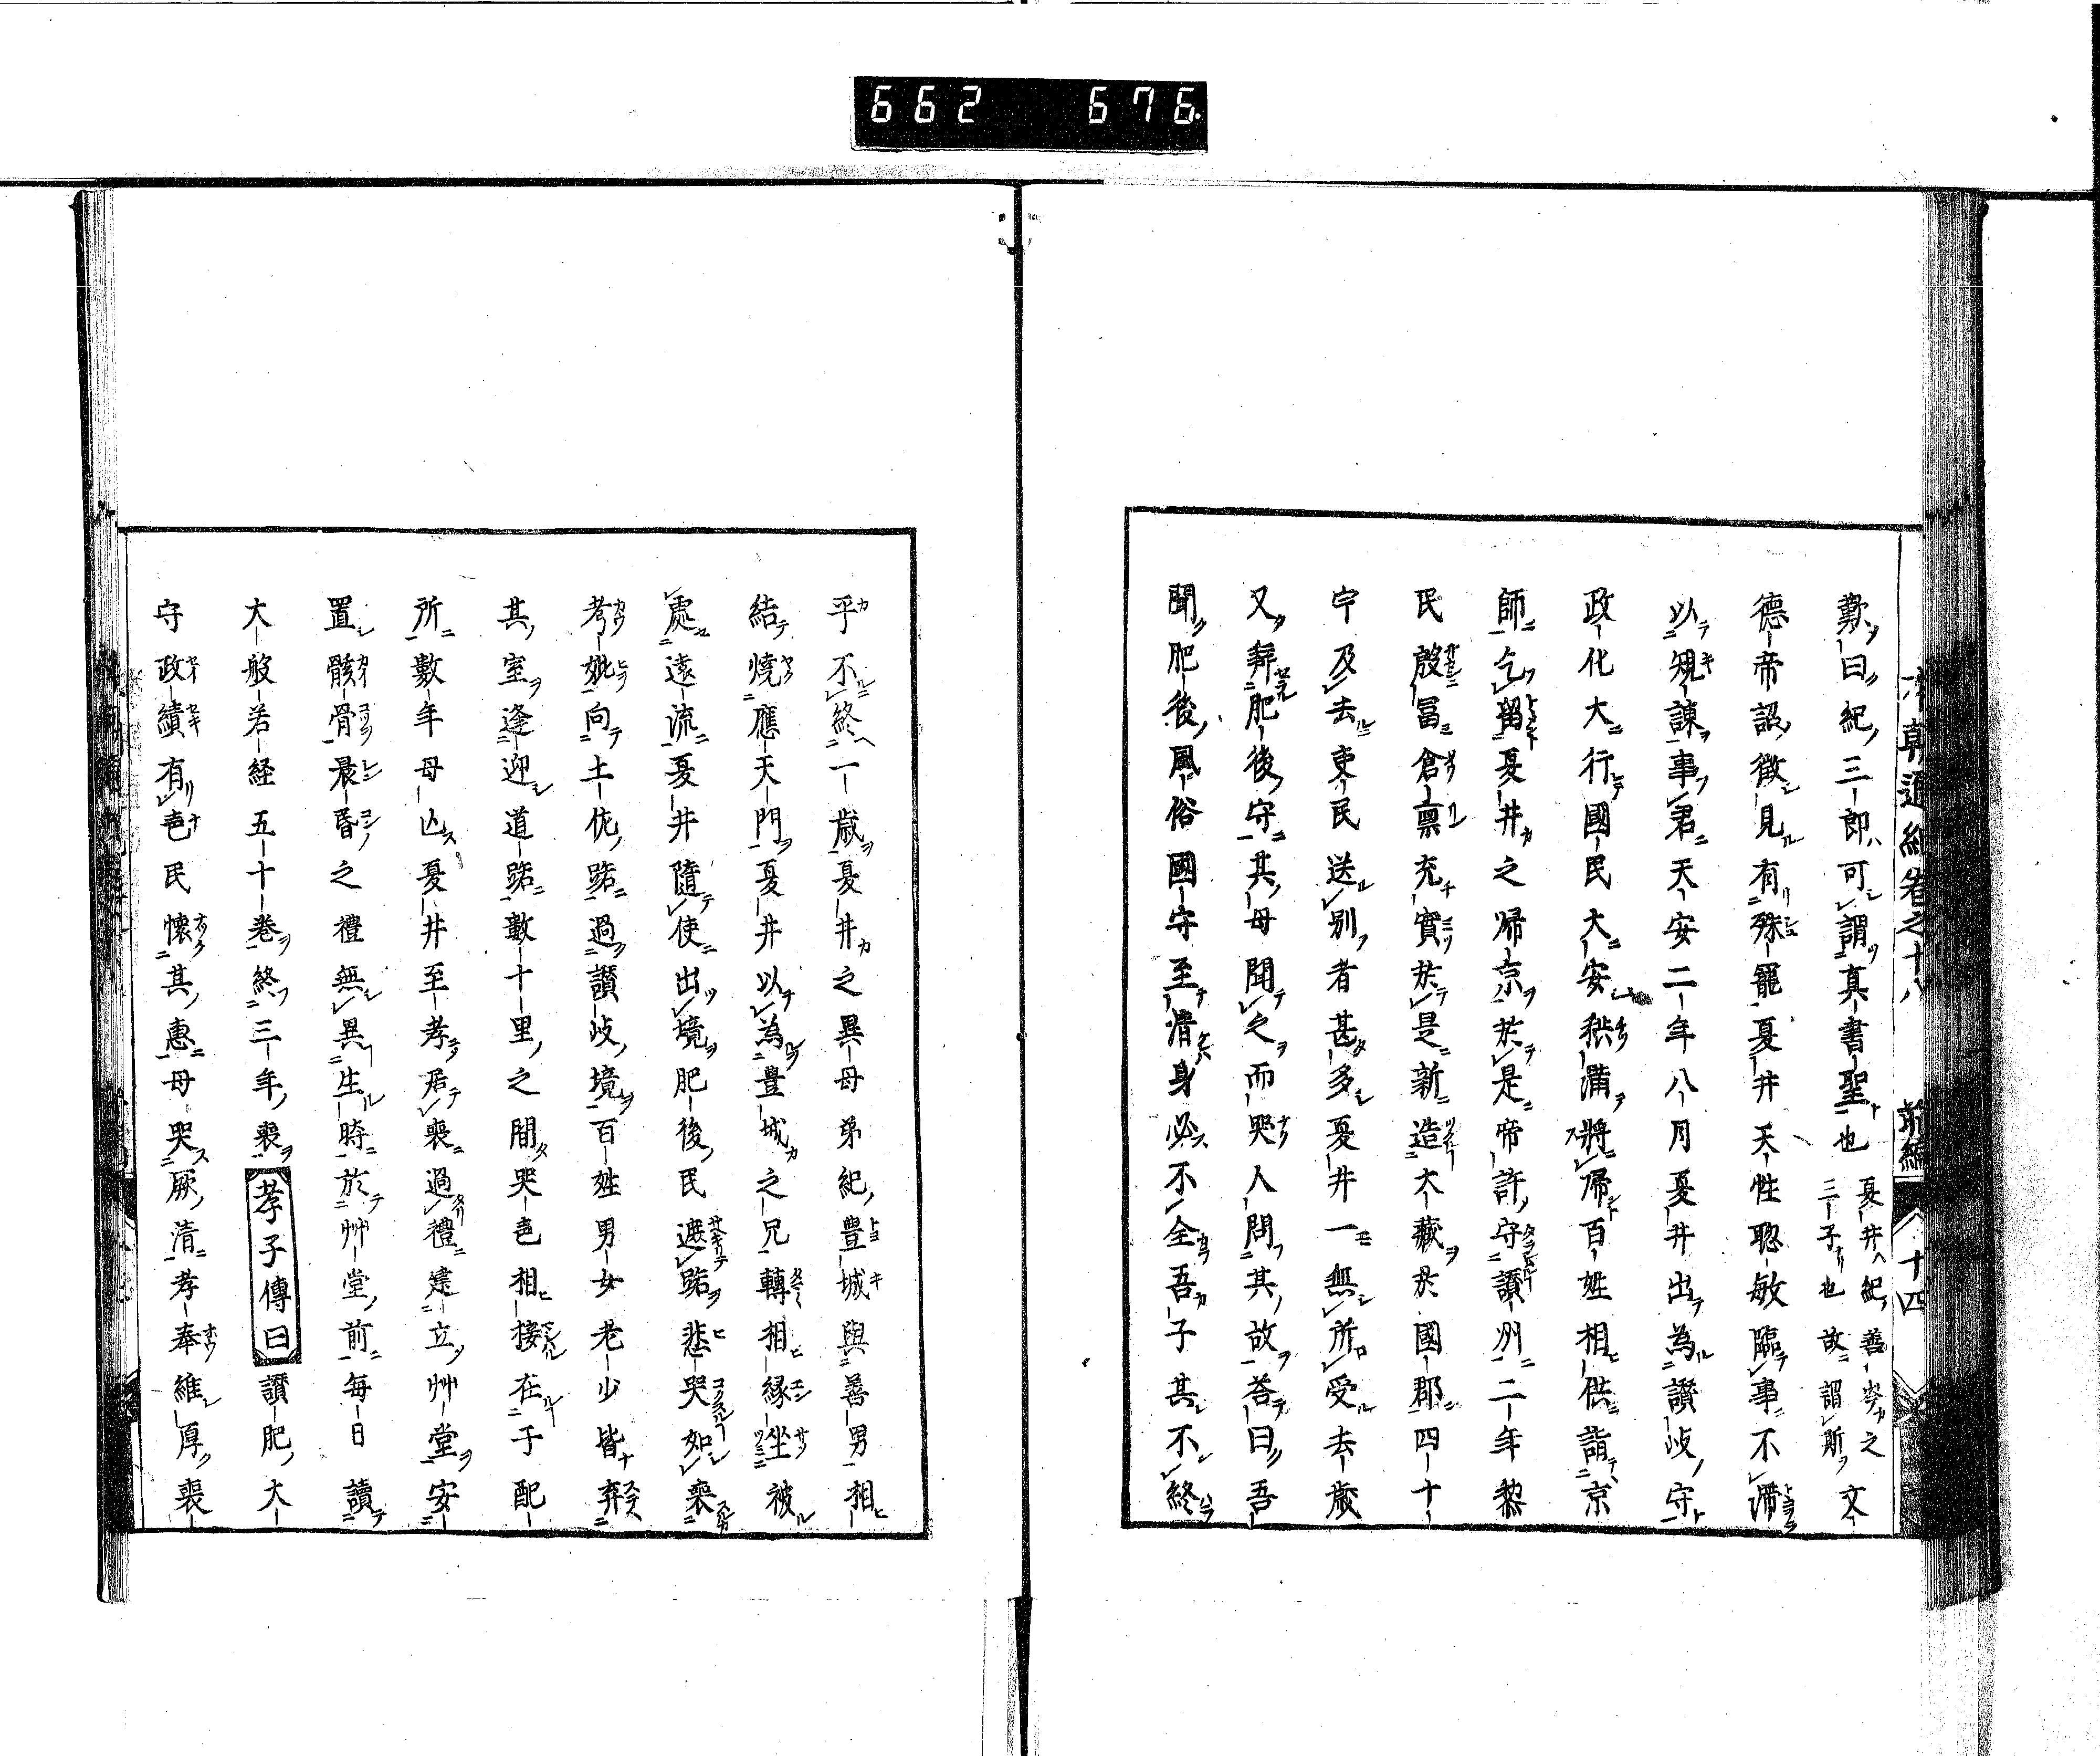 662 676
本朝通紀卷之十八 前編 十四
歎曰紀三郎可謂真書聖也 夏井紀善岑之三子也故謂斯 文
德帝詔徴見有殊寵夏井天性聡敏臨事不滯
以規諫事君天安二年八月夏井出為讃岐守
政化大行國民大安秩滿將帰百姓相供詣京
師乞留夏井之帰京於是帝許守讃州二年黎
民殷冨倉禀充實於是新造大藏於國郡四十
宇及去吏民送別者甚多夏井一無所受去歳
又辞肥後守其母聞之而哭人問其故答曰吾
聞肥後風俗國守至清身必不全吾子其不終
乎不終一歳夏井之異母弟紀豊城與善男相
結燒應天門夏井以為豊城之兄轉相縁坐被
處遠流夏井隨使出境肥後民遮路悲哭如喪
考妣向土佐路過讃岐境百姓男女老少皆弃
其室逢迎道路數十里之間哭㐌相接在于配
所數年母亾夏井至孝居喪過禮建立艸堂安
置骸骨晨昏之禮無異生時於艸堂前毎日讀
大般若経五十卷終三年喪 孝子傳曰 讃肥大
守政績有㐌民懷其恵母哭厥清孝奉維厚喪